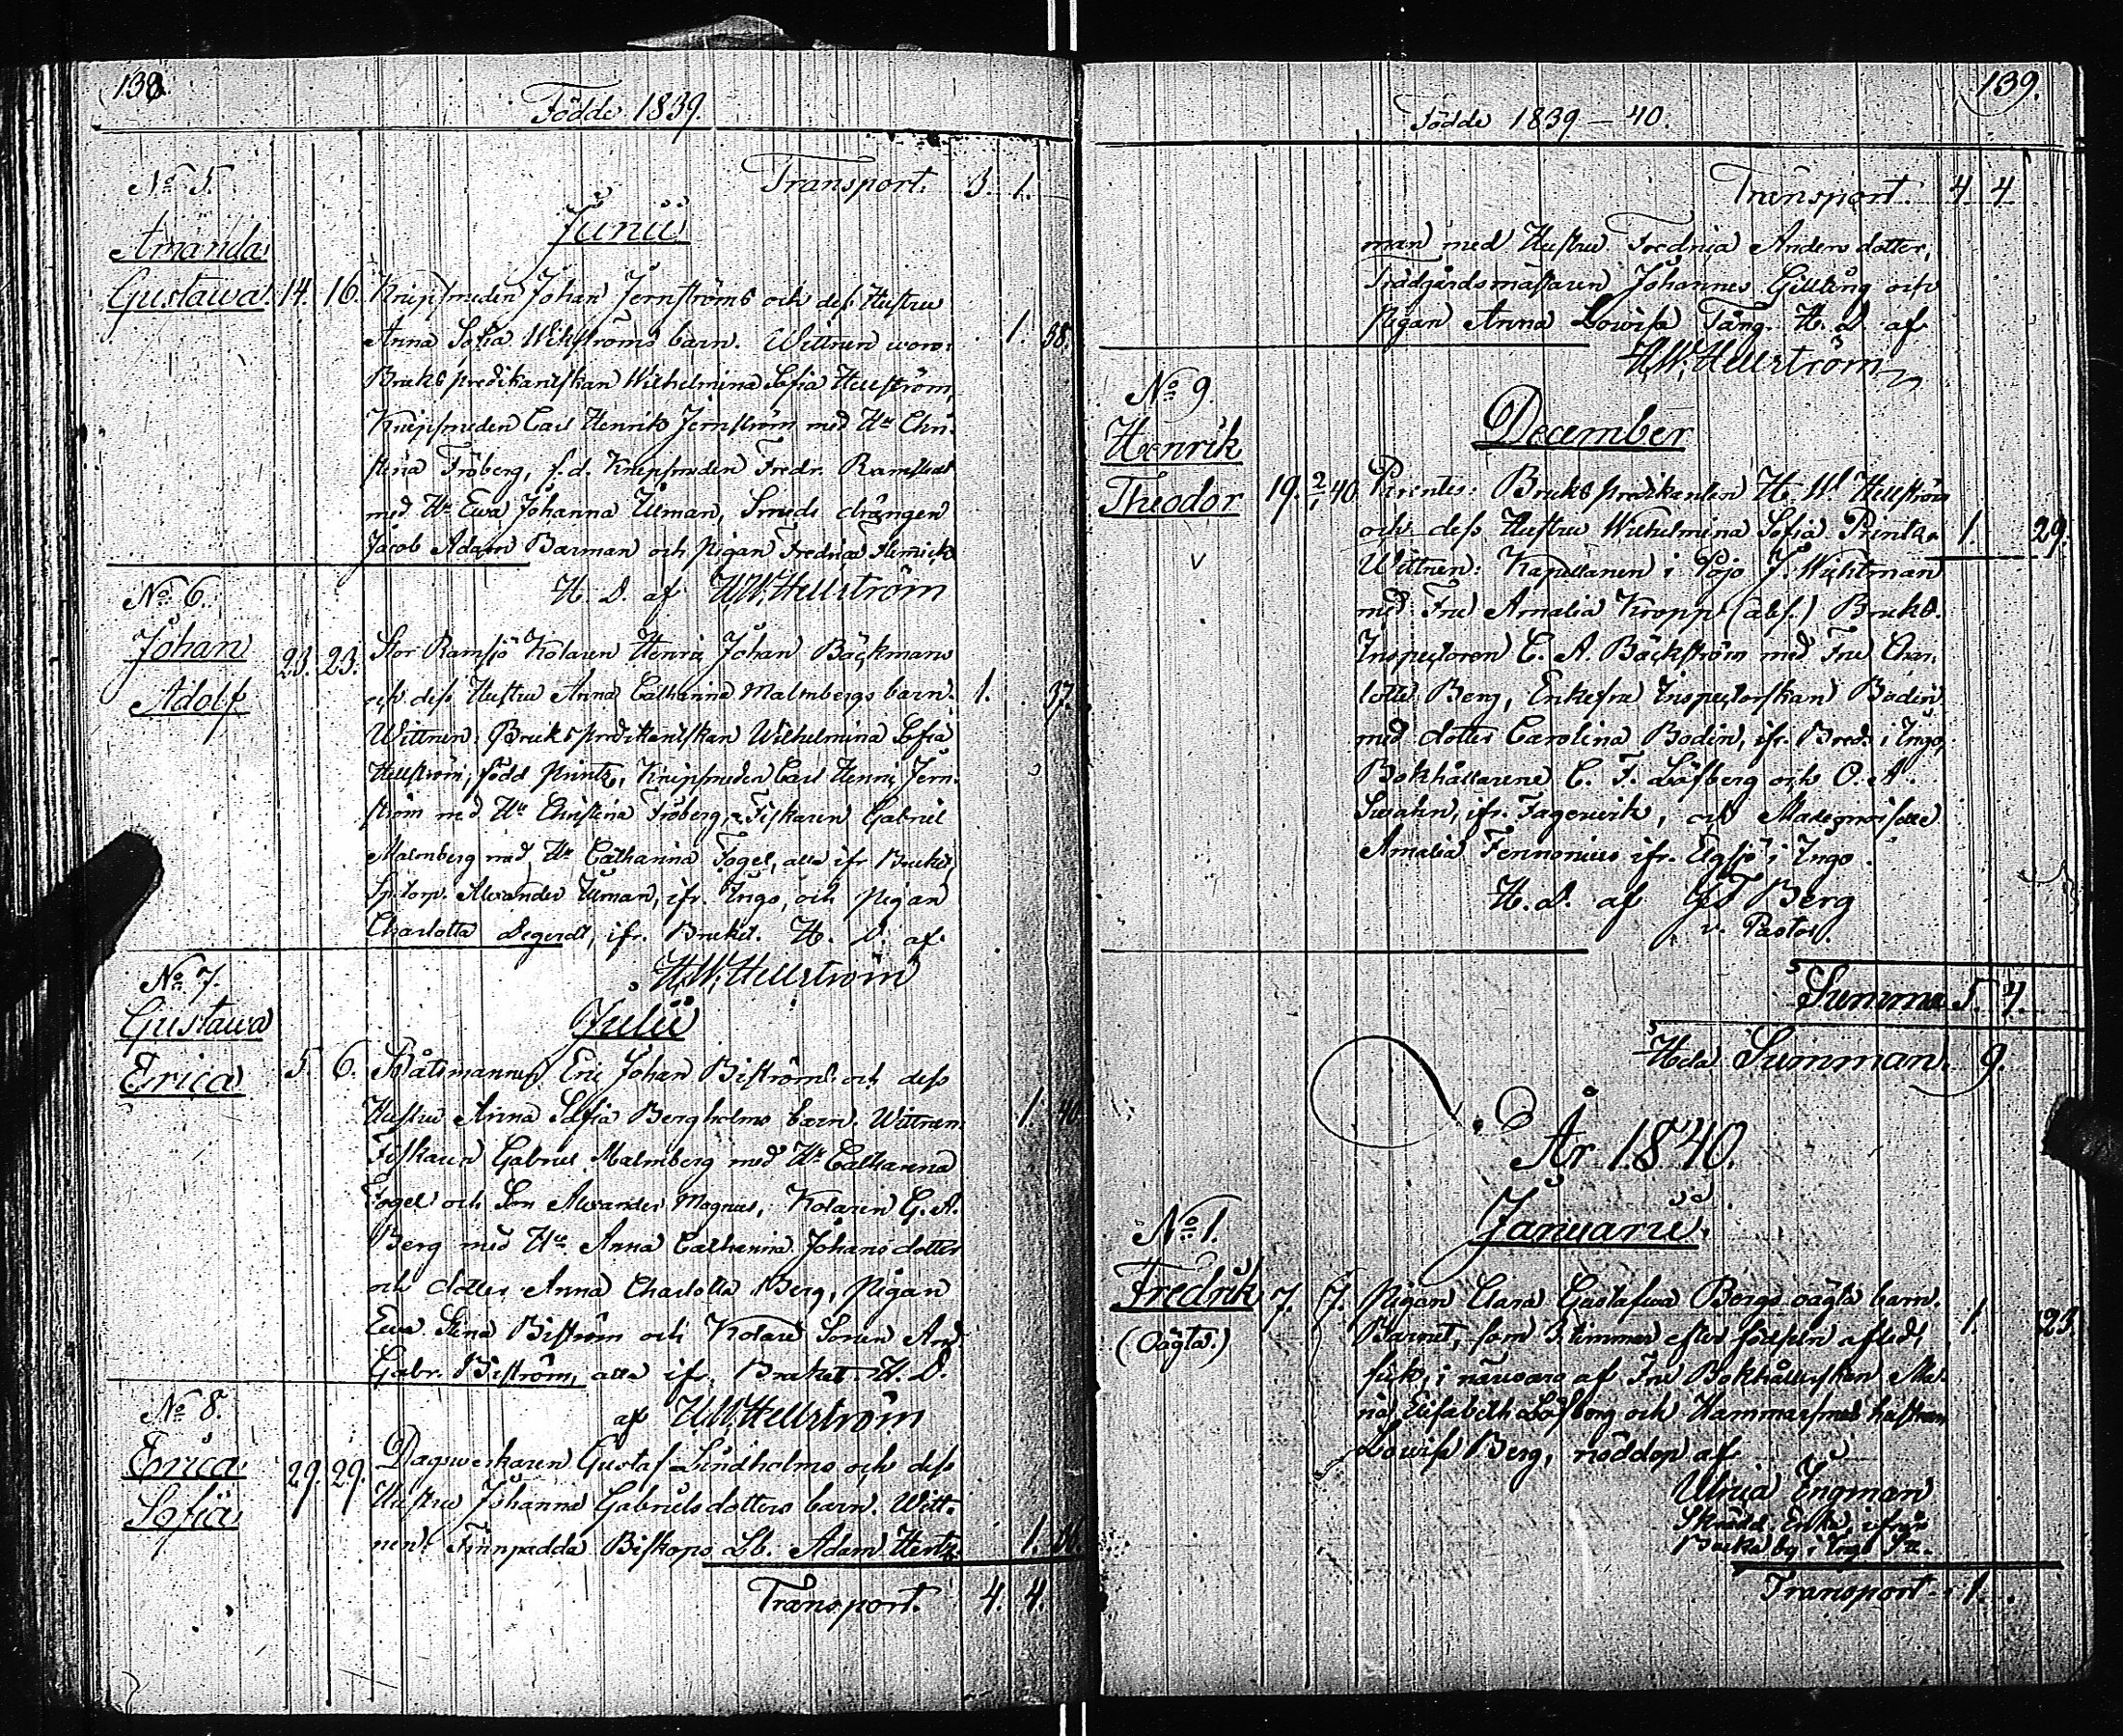 138.
Födde 1839.
No 5. Transport. 3. 1.
Junii
Amanda
Gustawa. 14. 16. Knipsmeden Johan Jernströms och dess Hustru
Anna Sofia Wikströms barn. Wittnen woro: 1. 38.
Brukspredikantskan Wilhelmina Sofia Hellström,
Knipsmeden Carl Henrik Jernström med Hu Chri-
stina Fröberg, f.d. Knipsmeden Fredr. Ramstedt
med Hu Ewa Johanna Ulman, Smeds drängen
Jacob Adam Barman och pigan Fredrica
H. D. af H.W. Hellström
No 6.
Johan
Adolf 23. 23. Stor Ramsjö Kolaren Henric Johan Bäckmans
och dess Hustru Anna Catharina Malmbergs barn. 1. 37.
Wittnen: Brukspredikantskan Wilhelmina Sofia
Hellström, född Printz, Knipsmeden Carl Henric Jern-
ström med Hu Christina Fröberg, Fiskaren Gabriel
Malmberg med Hu Catharina Fogel, alla ifr Bruket,
Alexander Ulman, ifr. Ingo, och pigan
Charlotta Segerdt, ifr. Bruket. H. D. af
H.W. Hellström
No 7.
Julii
Gustawa
Erica 5. 6. Båtsmannen Eric Johan Biströms och dess
Hustru Anna Sofia Bergholms barn. Wittnen: 1. 40.
Fiskaren Gabriel Malmberg med Hu Catharina
Fogel och Son Alexander Magnus, Kolaren G. A.
Berg med Hu Anna Catharina Johansdotter
och dotter Anna Charlotta Berg, pigan
Ewa Stina Biström och Kolare Sonen And.
Gabr. Biström, alla ifr. Bruket. H. D.
af H.W. Hellström
No 8.
Erica
Sofia 29. 29. Dagswerkaren Gustaf Lindholms och dess
Hustru Johanna Gabrielsdotters barn. Witt-
nen: Finnpadda Biskops Lb. Adam Hertz 1.
Transport. 4. 4.
139.
Födde 1839–40.
Transport. 4 4
man med Hustru Fredrica Andersdotter,
Trädgårdsmästaren Johannes Gillberg och
pigan Anna Lowisa Tång. H. D. af
H.W. Hellström
No 9.
December
Henrik
Theodor 19. 2/1 40 Parentes: Brukspredikanten H. W. Hellström
och dess Hustru Wilhelmina Sofia Printz. 1. 29.
Wittnen: Kapellanen i Pojo J. Wichtman
med Fru Amalia Kropp (abs.) Bruks-
Inspectoren C. A. Bäckström med Fru Char-
lotte Berg, Enkefru Inspectorskan Bodin
med dotter Carolina Bodin, ifr. i Ingo,
Bokhållarene C. F. Löfberg och O. A.
Swahn, ifr. Fagerwik, och Mademoiselle
Amalia Fennonius ifr. Elgsjö i Ingo.
H. D. af Berg
v. Pastor.
Summa 5. 4.
Hela Summan. 9.
År 1840.
Januarii.
No 1.
Fredrik 7. 7. Pigan Clara Gustafwa Bergs oägta barn. 1. 23.
(Oägta.) Barnet, som 3 timmar efter födseln afled,
fick, i närwaro af Fru Bokhållerskan Ma-
ria Elisabeth Löfberg och Hammarsmeds hustrun
Lowisa Berg, nöddop af
Ulrica Engman
Skrädd. Enka, ifrån
Backa by i Ingo Sn.
Transport. 1.